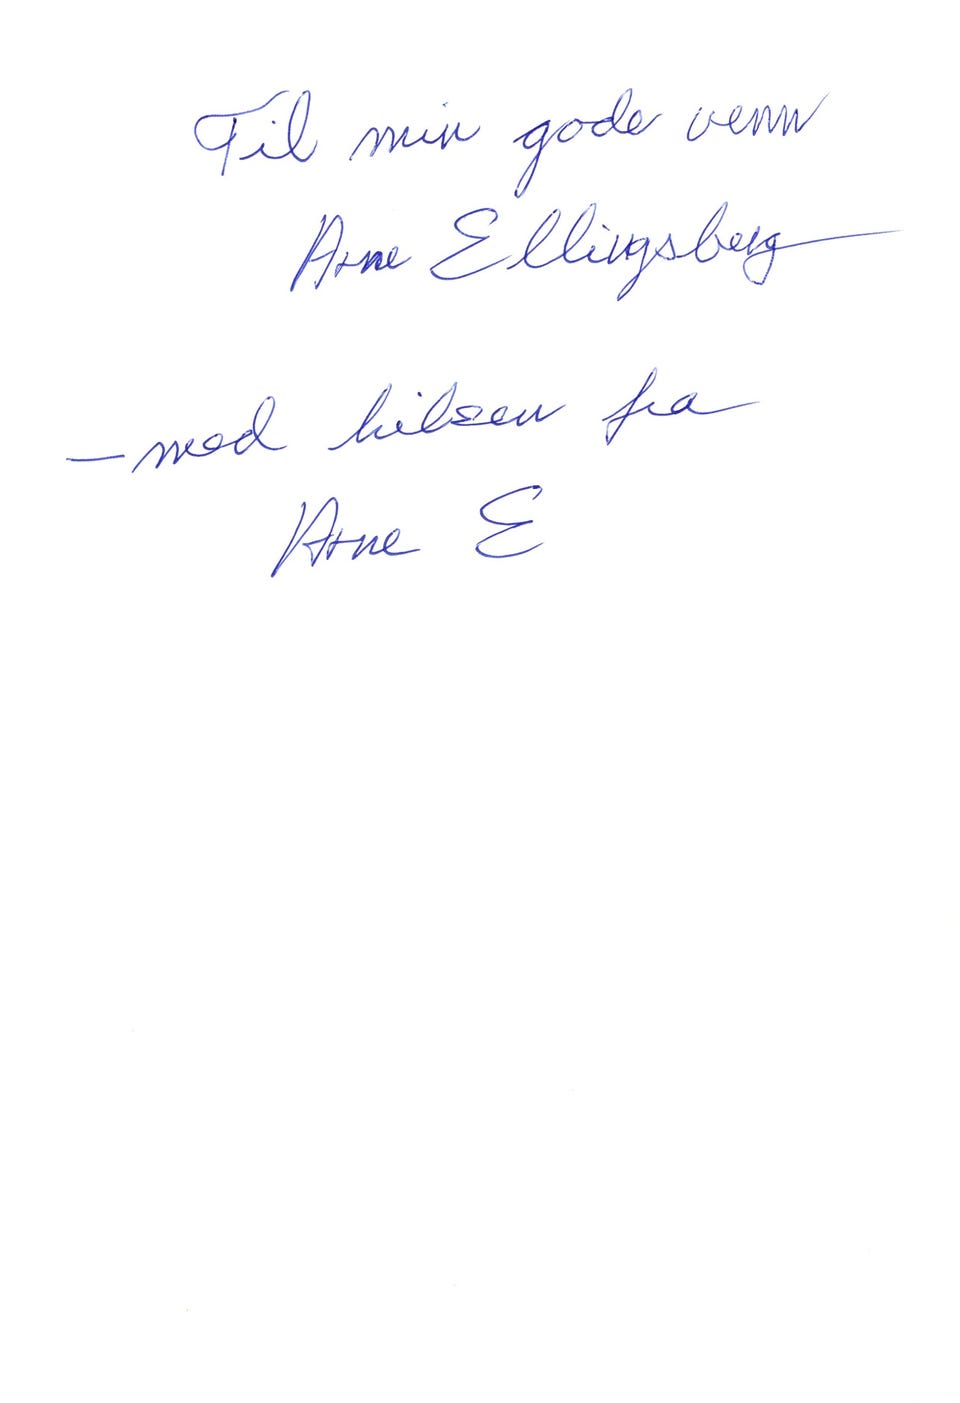 Til min gode venn
Arne Ellingsberg
– med hilsen fra
Arne E